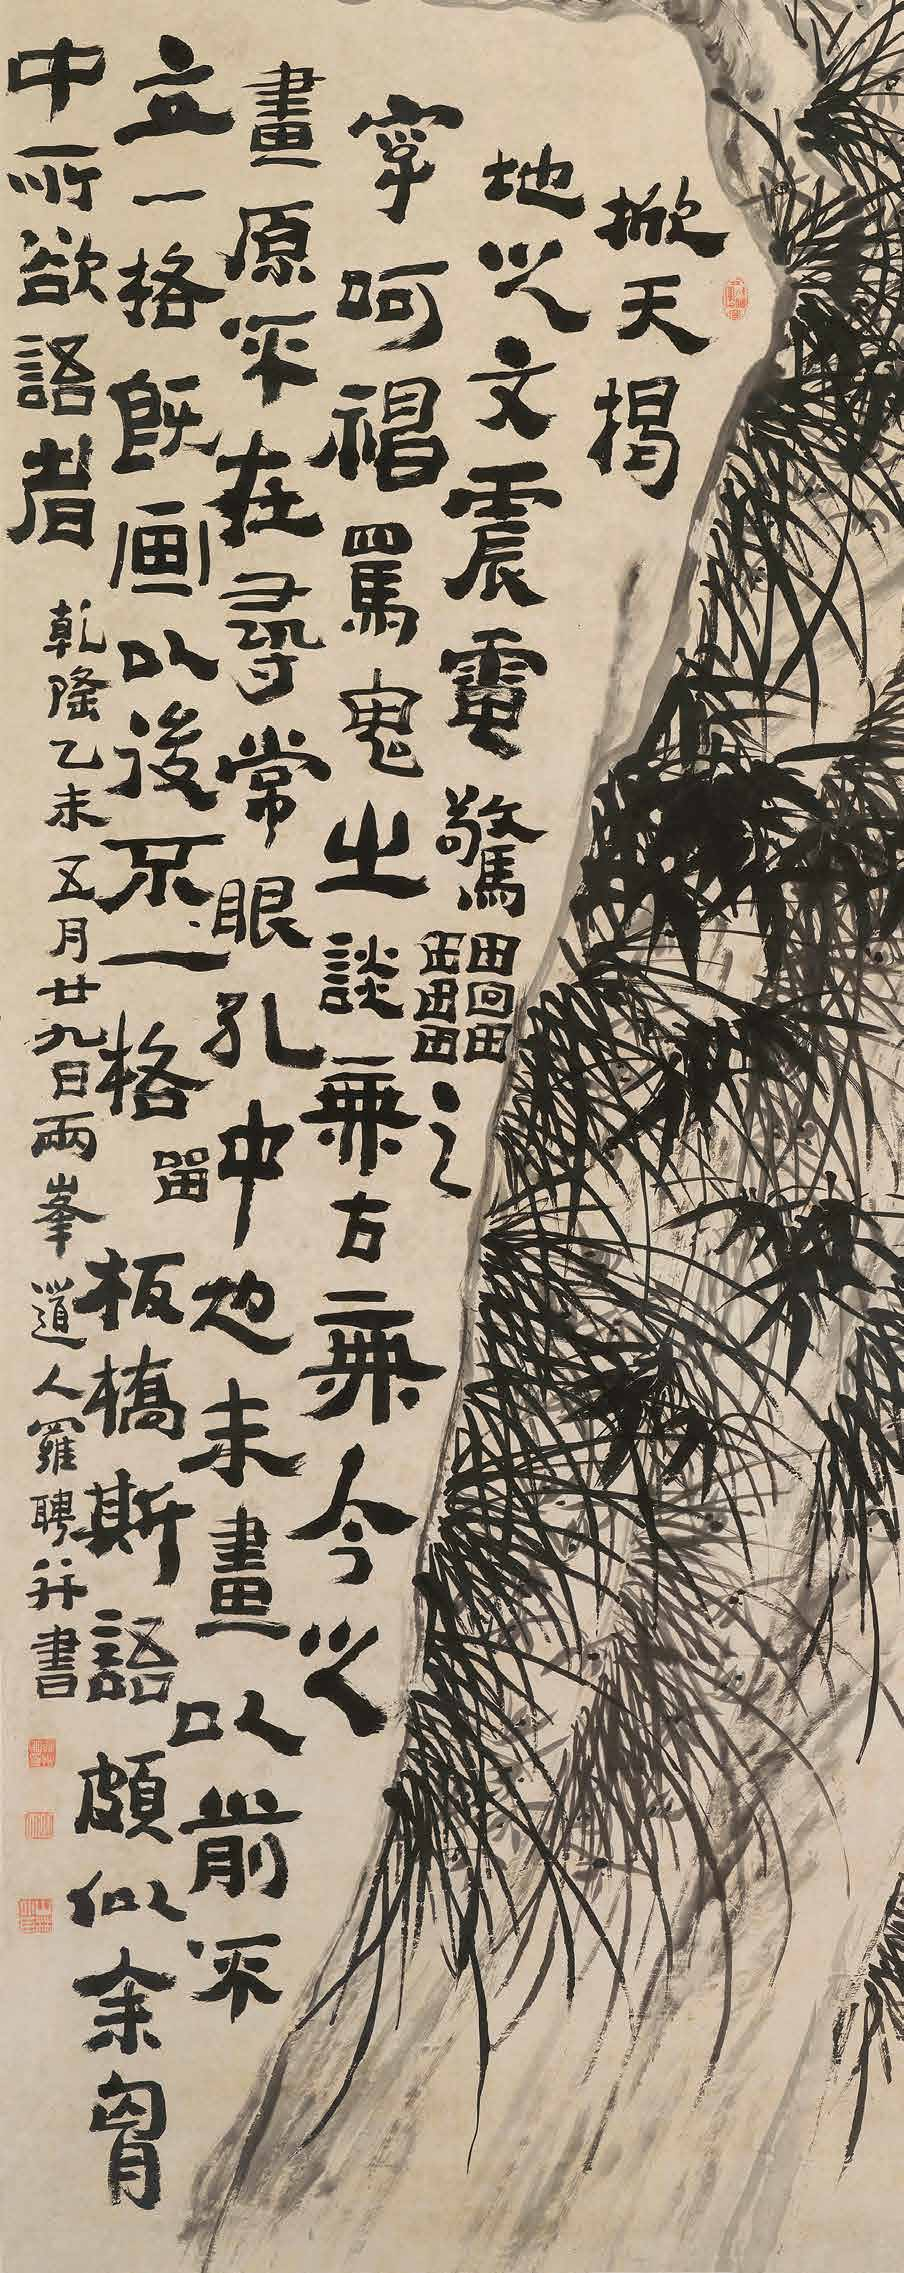 掀天揭
地之文震電驚雷之
字呵神罵鬼之談無古無今之
畫原不在尋常眼孔中也未畫以前不
立一格既画以後不一格留板橋斯語頗似余胷
中所欲語者乾隆乙未五月廿九日兩峯道人羅聘并書